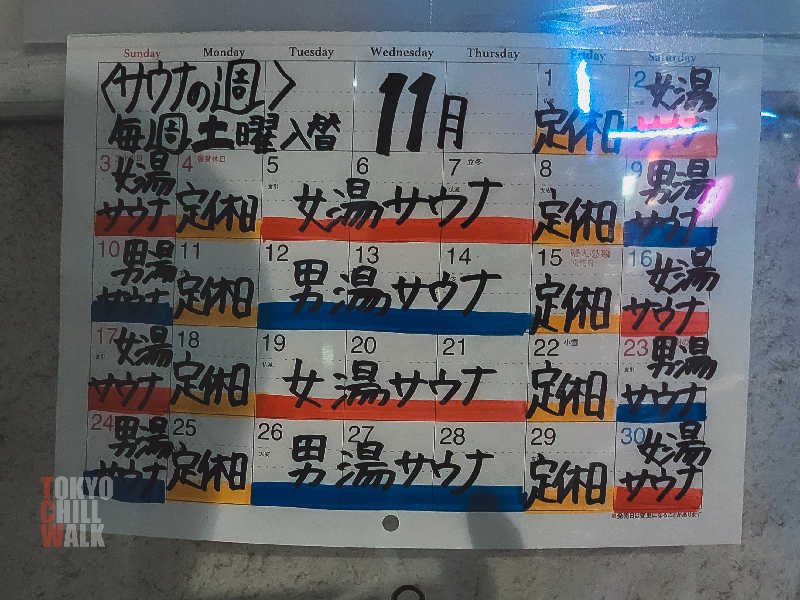 Sunday Monday Tuesday Wednesday Thursday Friday Saturday
〈サウナの週〉 11月
毎週土曜入替
1 定休日
2 女湯サウナ
3 女湯サウナ
4 振替休日 定休日
5 6 7 立冬 女湯サウナ
8 定休日
9 男湯サウナ
10 男湯サウナ
11 定休日
12 13 14 男湯サウナ
15 定休日
16 女湯サウナ
17 女湯サウナ
18 定休日
19 20 21 女湯サウナ
22 小雪 定休日
23 男湯サウナ
24 男湯サウナ
25 定休日
26 27 28 男湯サウナ
29 定休日
30 女湯サウナ
TOKYO
CHILL
WALK